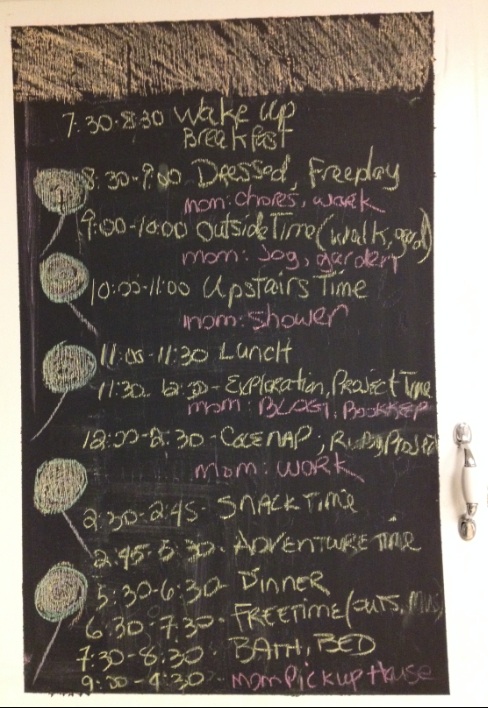 7:30-8:30 Wake up
Breakfast
8:30-9:00 Dressed, Freeplay
mom: chores, work
9:00-10:00 Outside Time (walk, yard)
mom: Jog, garden
10:00-11:00 Upstairs Time
mom: shower
11:00-11:30 Lunch
11:30-12:30- Exploration, Project Time
mom: BLOG, BOOKKEEP
12:00-2:30- COLENAP,
mom: WORK
2:30-2:45- SNACK TIME
2:45-5:30- ADVENTURE TIME
5:30-6:30- DINNER
6:30-7:30- FREETIME (
7:30-8:30- BATH, BED
9:00-9:30- mom Pickup House